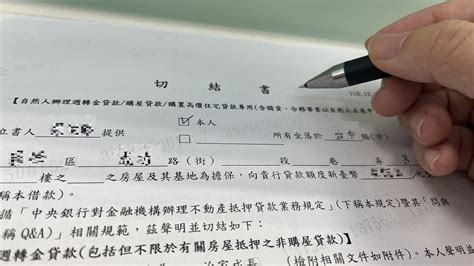 切結書
【自然人辦理週轉金貸款/購屋貸款/購置高價住宅貸款專用(含獨資、合夥事業以自然人名義申
立書人 提供 ☑本人
□ 所有坐落於 縣(市)
區 路(街) 段 巷 弄
樓之 之房屋及其基地為擔保,向貴行貸款額度新臺幣
稱本借款)。
循「中央銀行對金融機構辦理不動產抵押貸款業務規定」(下稱本規定)暨其「問與
稱 Q&A)」相關規範,茲聲明並切結如下:
週轉金貸款(包括但不限於有關房屋抵押之非購屋貸款)】
(檢附相關文件如附件)。本